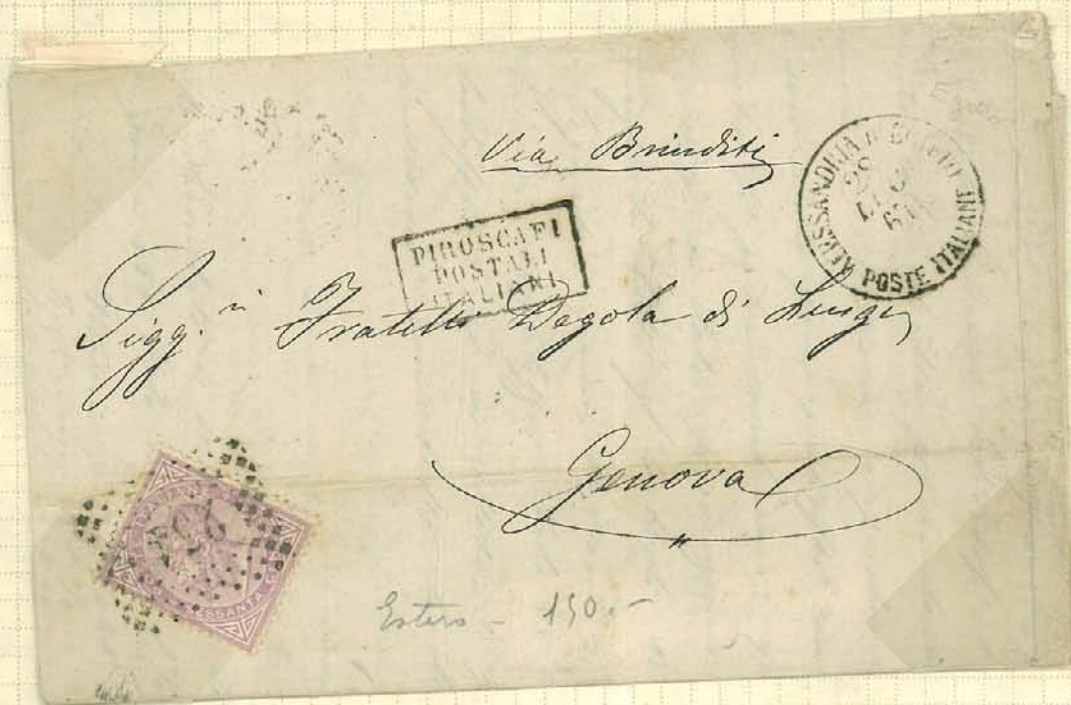 Via Brindisi
ALESSANDRIA D'EGITTO
28
DIC
67
POSTE ITALIANE
PIROSCAFI
POSTALI
ITALIANI
Sigg.ri Fratelli Degola di Luigi
Genova
234
SESSANTA
Estero - 150.-